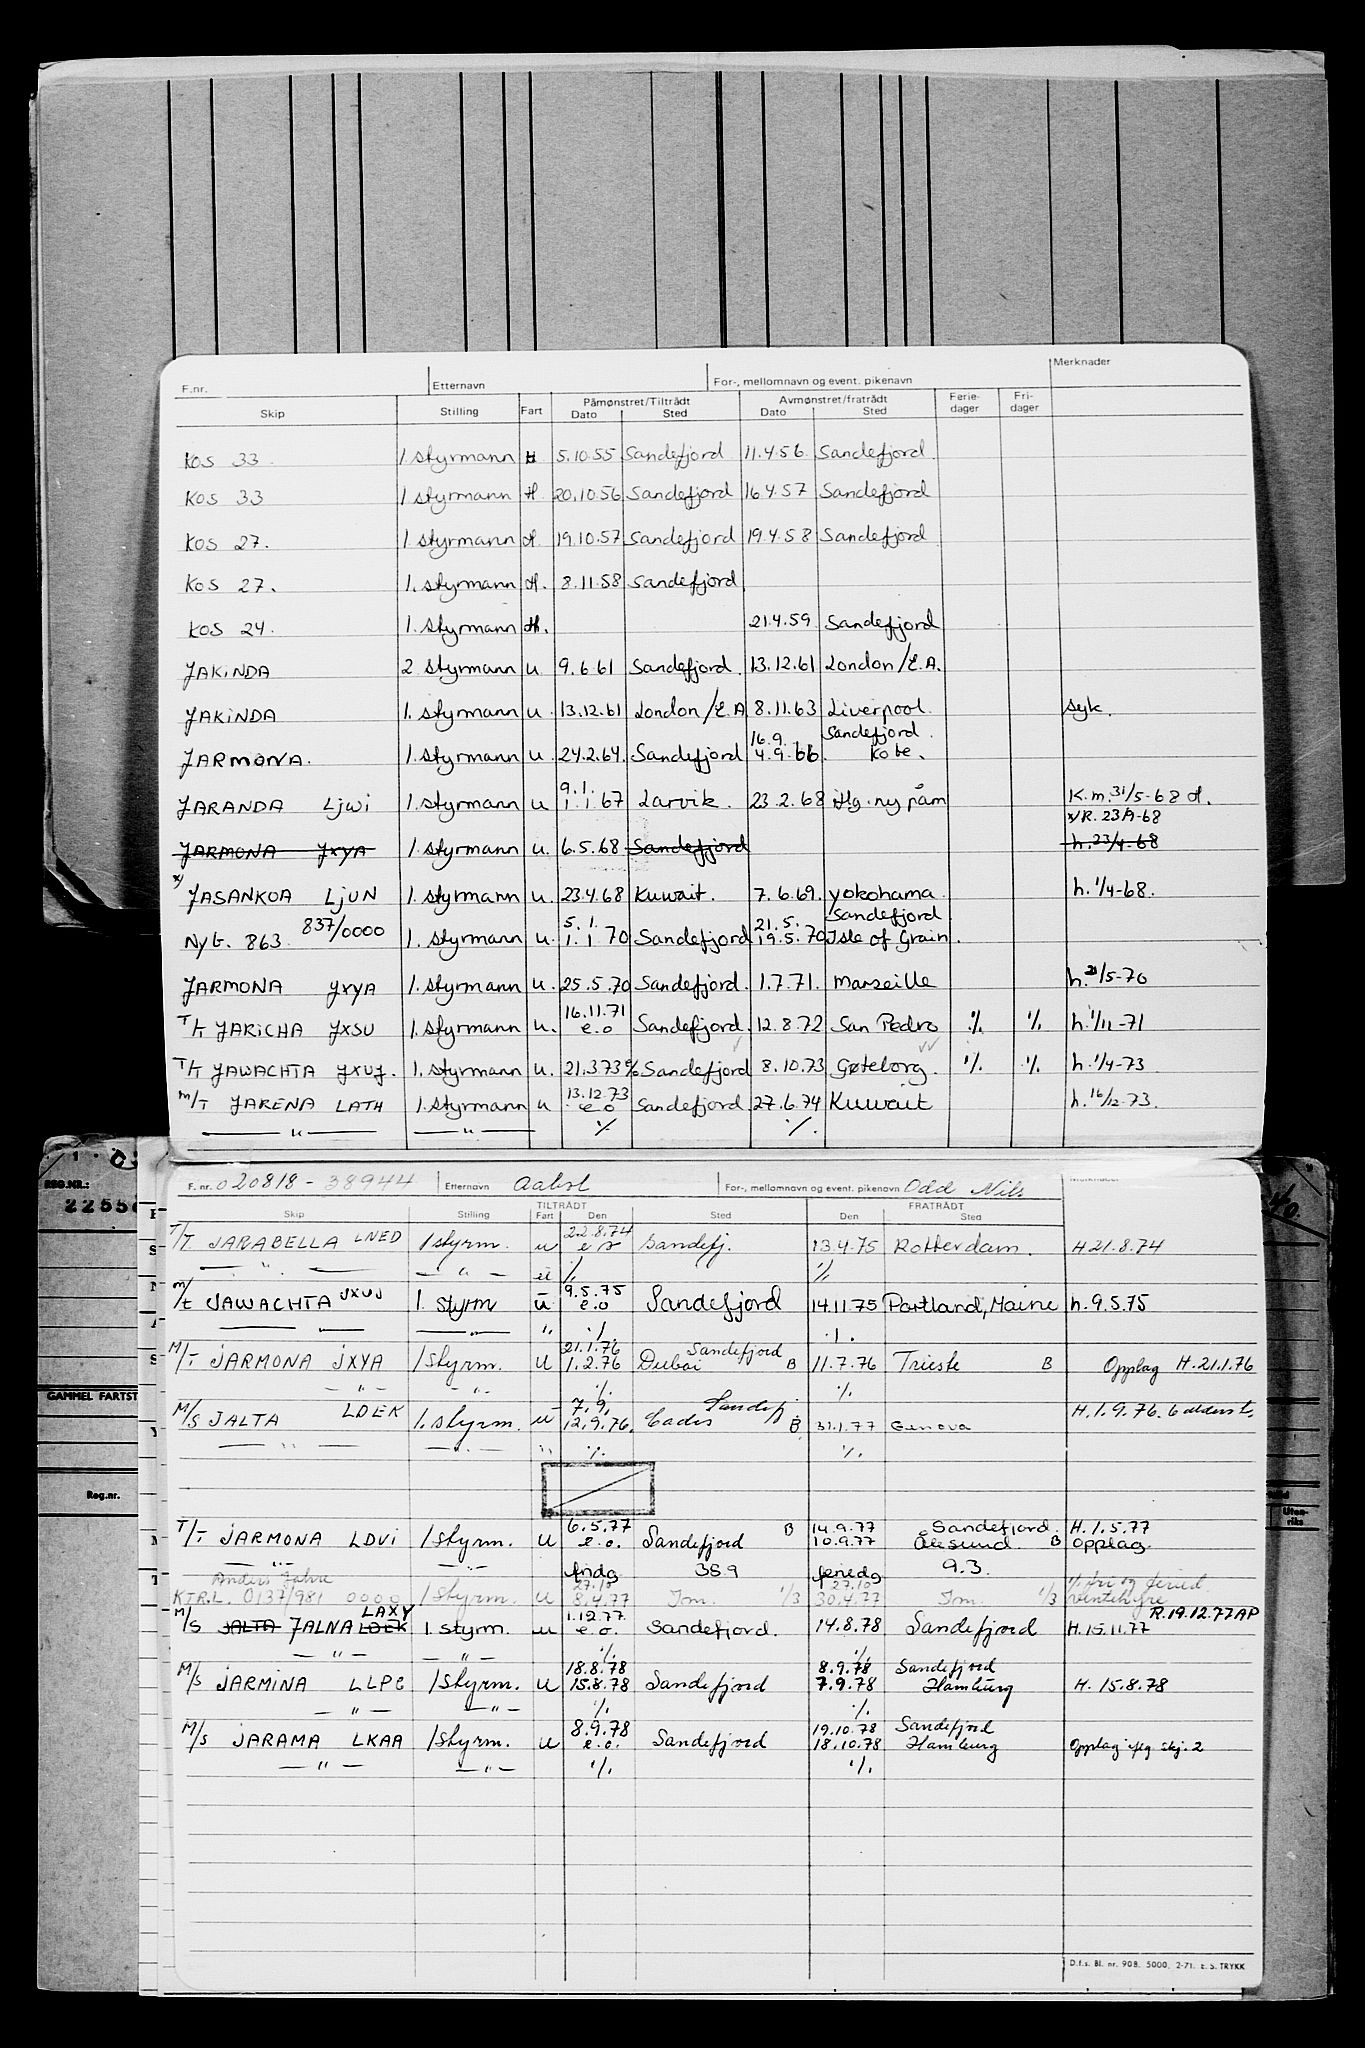 F.nr. Etternavn For-, mellomnavn og event. pikenavn Merknader
Skip Stilling Fart Påmønstret/Tiltrådt Dato Sted Avmønstret/fratrådt Dato Sted Ferie-dager Fri-dager
KOS 33 1 styrmann H 5.10.55 Sandefjord 11.4.56 Sandefjord
KOS 33 1 styrmann H. 20.10.56 Sandefjord 16.4.57 Sandefjord
KOS 27. 1 styrmann H. 19.10.57 Sandefjord 19.4.58 Sandefjord
KOS 27. 1. styrmann H. 8.11.58 Sandefjord
KOS 24. 1. styrmann H. 21.4.59 Sandefjord
JAKINDA 2 styrmann u 9.6.61 Sandefjord. 13.12.61 London/E.A.
JAKINDA 1. styrmann u. 13.12.61 London/E.A 8.11.63 Liverpool. syk.
16.9. Sandefjord.
JARMONA. 1. styrmann u. 24.2.64. Sandefjord 4.9.66. Kobe.
9.1.
JARANDA LJWI 1. styrmann u 1.1.67 Larvik. 23.2.68 iflg. ny påm K.m. 31/5-68 H.
x/R. 23/4-68
JARMONA JXYA 1. styrmann u. 6.5.68 Sandefjord h. 23/4-68
x) JASANKOA LJUN 1. styrmann u. 23.4.68 Kuwait. 7.6.69. Yokohama. h. 1/4-68.
837/0000 5.1. 21.5. Sandefjord
Nyb. 863 1. styrmann u. 1.1.70 Sandefjord 19.5.70 Isle of Grain.
JARMONA JXYA 1. styrmann u. 25.5.70 Sandefjord. 1.7.71. Marseille h. 21/5-70
16.11.71
T/T JARICHA JXSU 1. styrmann u. e.o Sandefjord. 12.8.72 San Pedro % % h. 1/11-71
T/T JAWACHTA JXUJ. 1. styrmann u. 21.3.73 % Sandefjord 8.10.73 Gøteborg. % % h. 1/4-73
13.12.73
M/T JARENA LATH 1. styrmann u e.o Sandefjord. 27.6.74 Kuwait h. 16/12-73.
— " — — " — % %.
F. nr. 020818 - 38944 Etternavn Aabol For-, mellomnavn og event. pikenavn Odd Nils Merknader
Skip Stilling TILTRÅDT Fart Den Sted FRATRÅDT Den Sted
22.8.74
T/T JARABELLA LNED 1 styrm. u e o Sandefj. 13.4.75 Rotterdam. H 21.8.74
— " — — " — u % %
9.5.75
m/t JAWACHTA JXUJ 1. styrm u e.o Sandefjord 14.11.75 Portland, Maine h. 9.5.75
— " — — " % %.
21.1.76 Sandefjord
M/T JARMONA JXYA 1 styrm. u 1.2.76 Dubai B 11.7.76 Trieste B Opplag H. 21.1.76
— " — — " — %. %
7.9. Sandefj
M/S JALTA LDEK 1. styrm. u 12.9.76. Cadis B 31.1.77 Genova H. 1.9.76. 6 alderst.
— " — — " — " %. %.
6.5.77 B 14.9.77 Sandefjord H. 1.5.77
T/T JARMONA LDVI 1 styrm. u e.o. Sandefjord 10.9.77 Ålesund. B Opplag.
— " — — " — fridg 38.9 feriedg 9.3
Anders Jahre 27.10 27.10
KTR.L. 0137/981 0000 1 styrm. u 8.4.77 Tom. 1/3 30.4.77 Tom. 1/3
LAXY 1.12.77 R.19.12.77 AP
M/S JALTA JALNA LDEK 1. styrm. u e.o. Sandefjord. 14.8.78 Sandefjord H. 15.11.77
— " — — " — % %
18.8.78 8.9.78 Sandefjord
M/S JARMINA LLPC 1 Styrm. u 15.8.78 Sandefjord 7.9.78 Hamburg H. 15.8.78
— " — — " — % %
8.9.78 19.10.78 Sandefjord
M/S JARAMA LKAA 1 Styrm. u e.o. Sandefjord 18.10.78 Hamburg Opplag iflg skj. 2
— " — — " — %. %.
D.f.s. Bl. nr. 908. 5000. 2-71. E.S. TRYKK
REG.NR.:
GAMMEL FARTST
Reg.nr.
Uten-riks